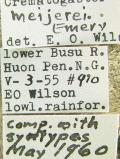 Crematogaster
meijerei
Emery
det. E. O. Wils
lower Busu R.
Huon Pen.N.G.
V-3-55 #910
EO Wilson
lowl.rainfor.
comp. with
syntypes
May 1960